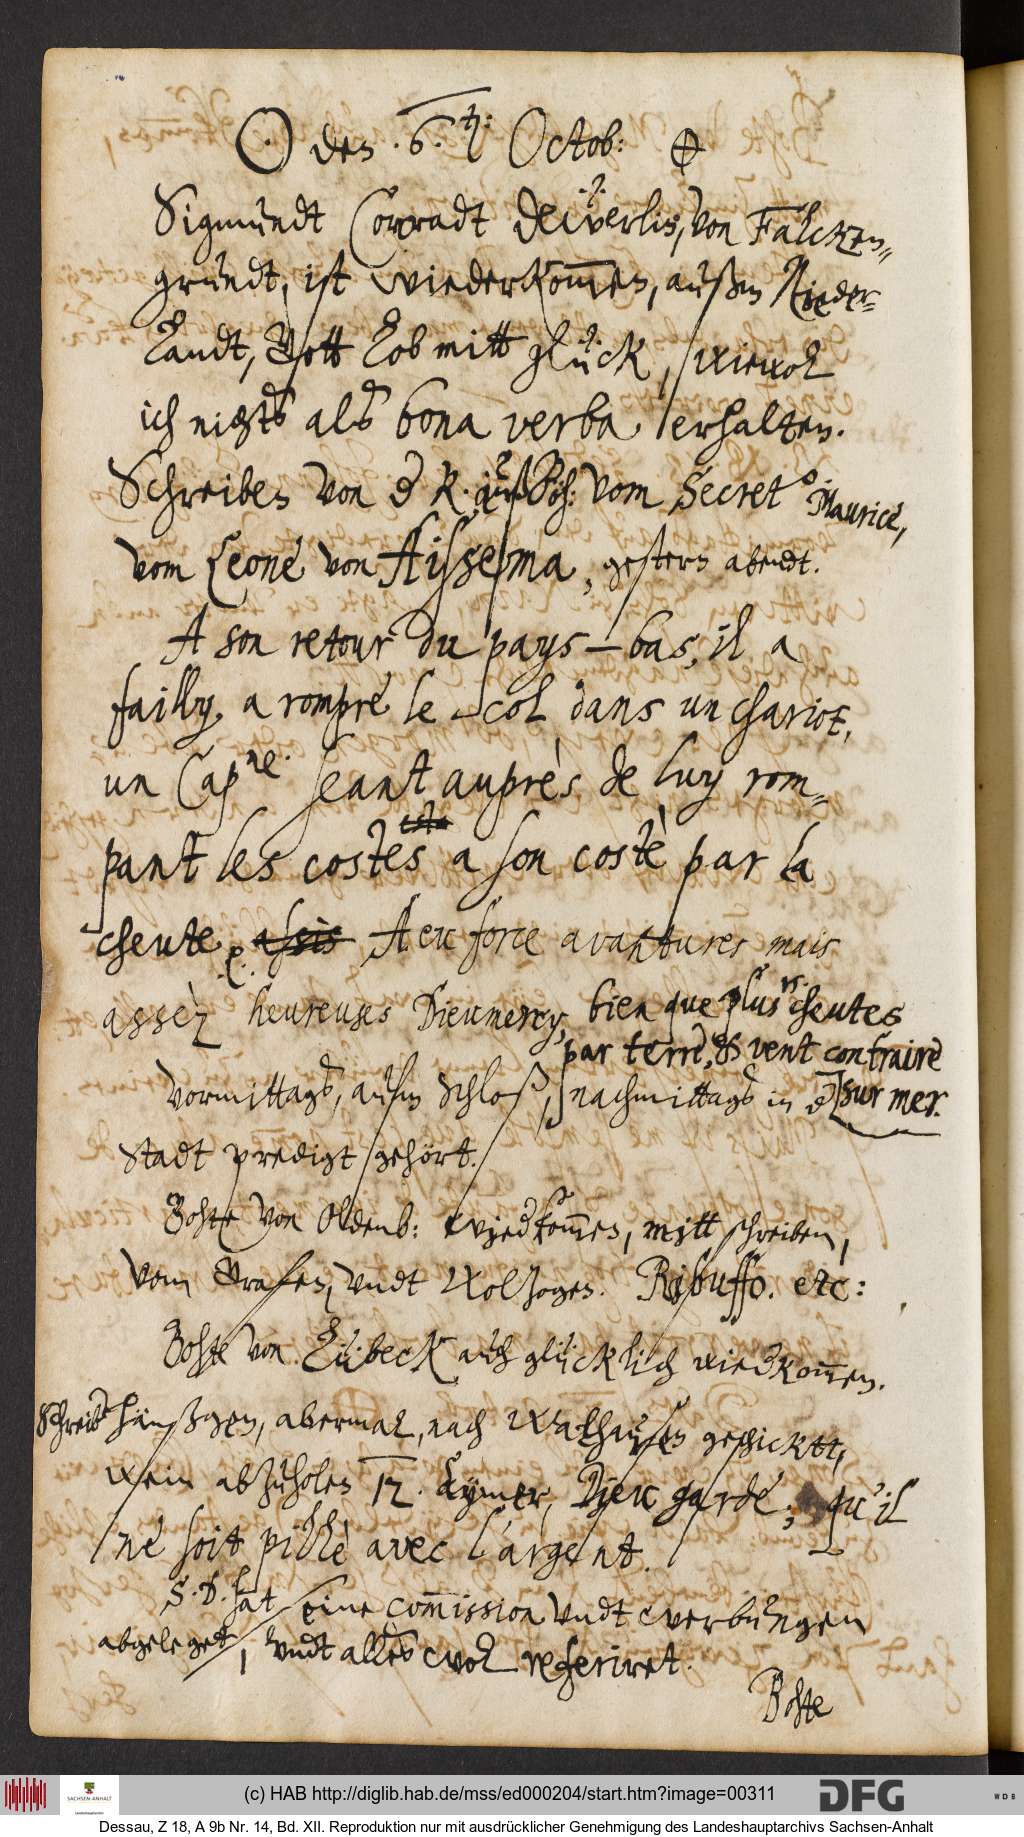 ☉ den .6.th: Octob: ⊕
Sigmundt Conradt Deüerlin, von Falcken=
grundt, ist wiederkommen, außm Nieder=
landt, Gott lob mitt glück, wiewol
ich nichts als bona verba, erhalten.
Schreiben von d K. auß Böh: vom Secret.o Mauricé,
vom Leone von Aissema, gestern abendt.
A son retour du pays-bas, il a
failly, a rompre le col dans un chariot,
un Cap.ne seant auprès de luy rom=
pant les costes a son costè par la
cheute, p. A eu force avantures mais
assèz heureuses Dieumercy, bien que plus.rs cheutes
par terre, & vent contraire
sur mer.
Vormittags, aufm Schloß, nachmittags in d
Stadt predigt gehört.
Bohte von Oldenb: wiedkommen, mitt schreiben,
vom Grafen, vndt Wolzogen. Ribuffo. etc:
Bohte von Lübeck auch glücklich wiedkommen.
Schreib Hänßgen, abermal, nach Walhausen geschicktt,
wein abzuholen 12. Eymer, Dieu garde, qu'il
ne soit pillè avec l'argent.
S. D. hat seine commission vndt werbungen
abgeleget, vndt alles wol referiret.
Bohte
(c) HAB http://diglib.hab.de/mss/ed000204/start.htm?image=00311
SACHSEN-ANHALT
DFG
WDB
Dessau, Z 18, A 9b Nr. 14, Bd. XII. Reproduktion nur mit ausdrücklicher Genehmigung des Landeshauptarchivs Sachsen-Anhalt